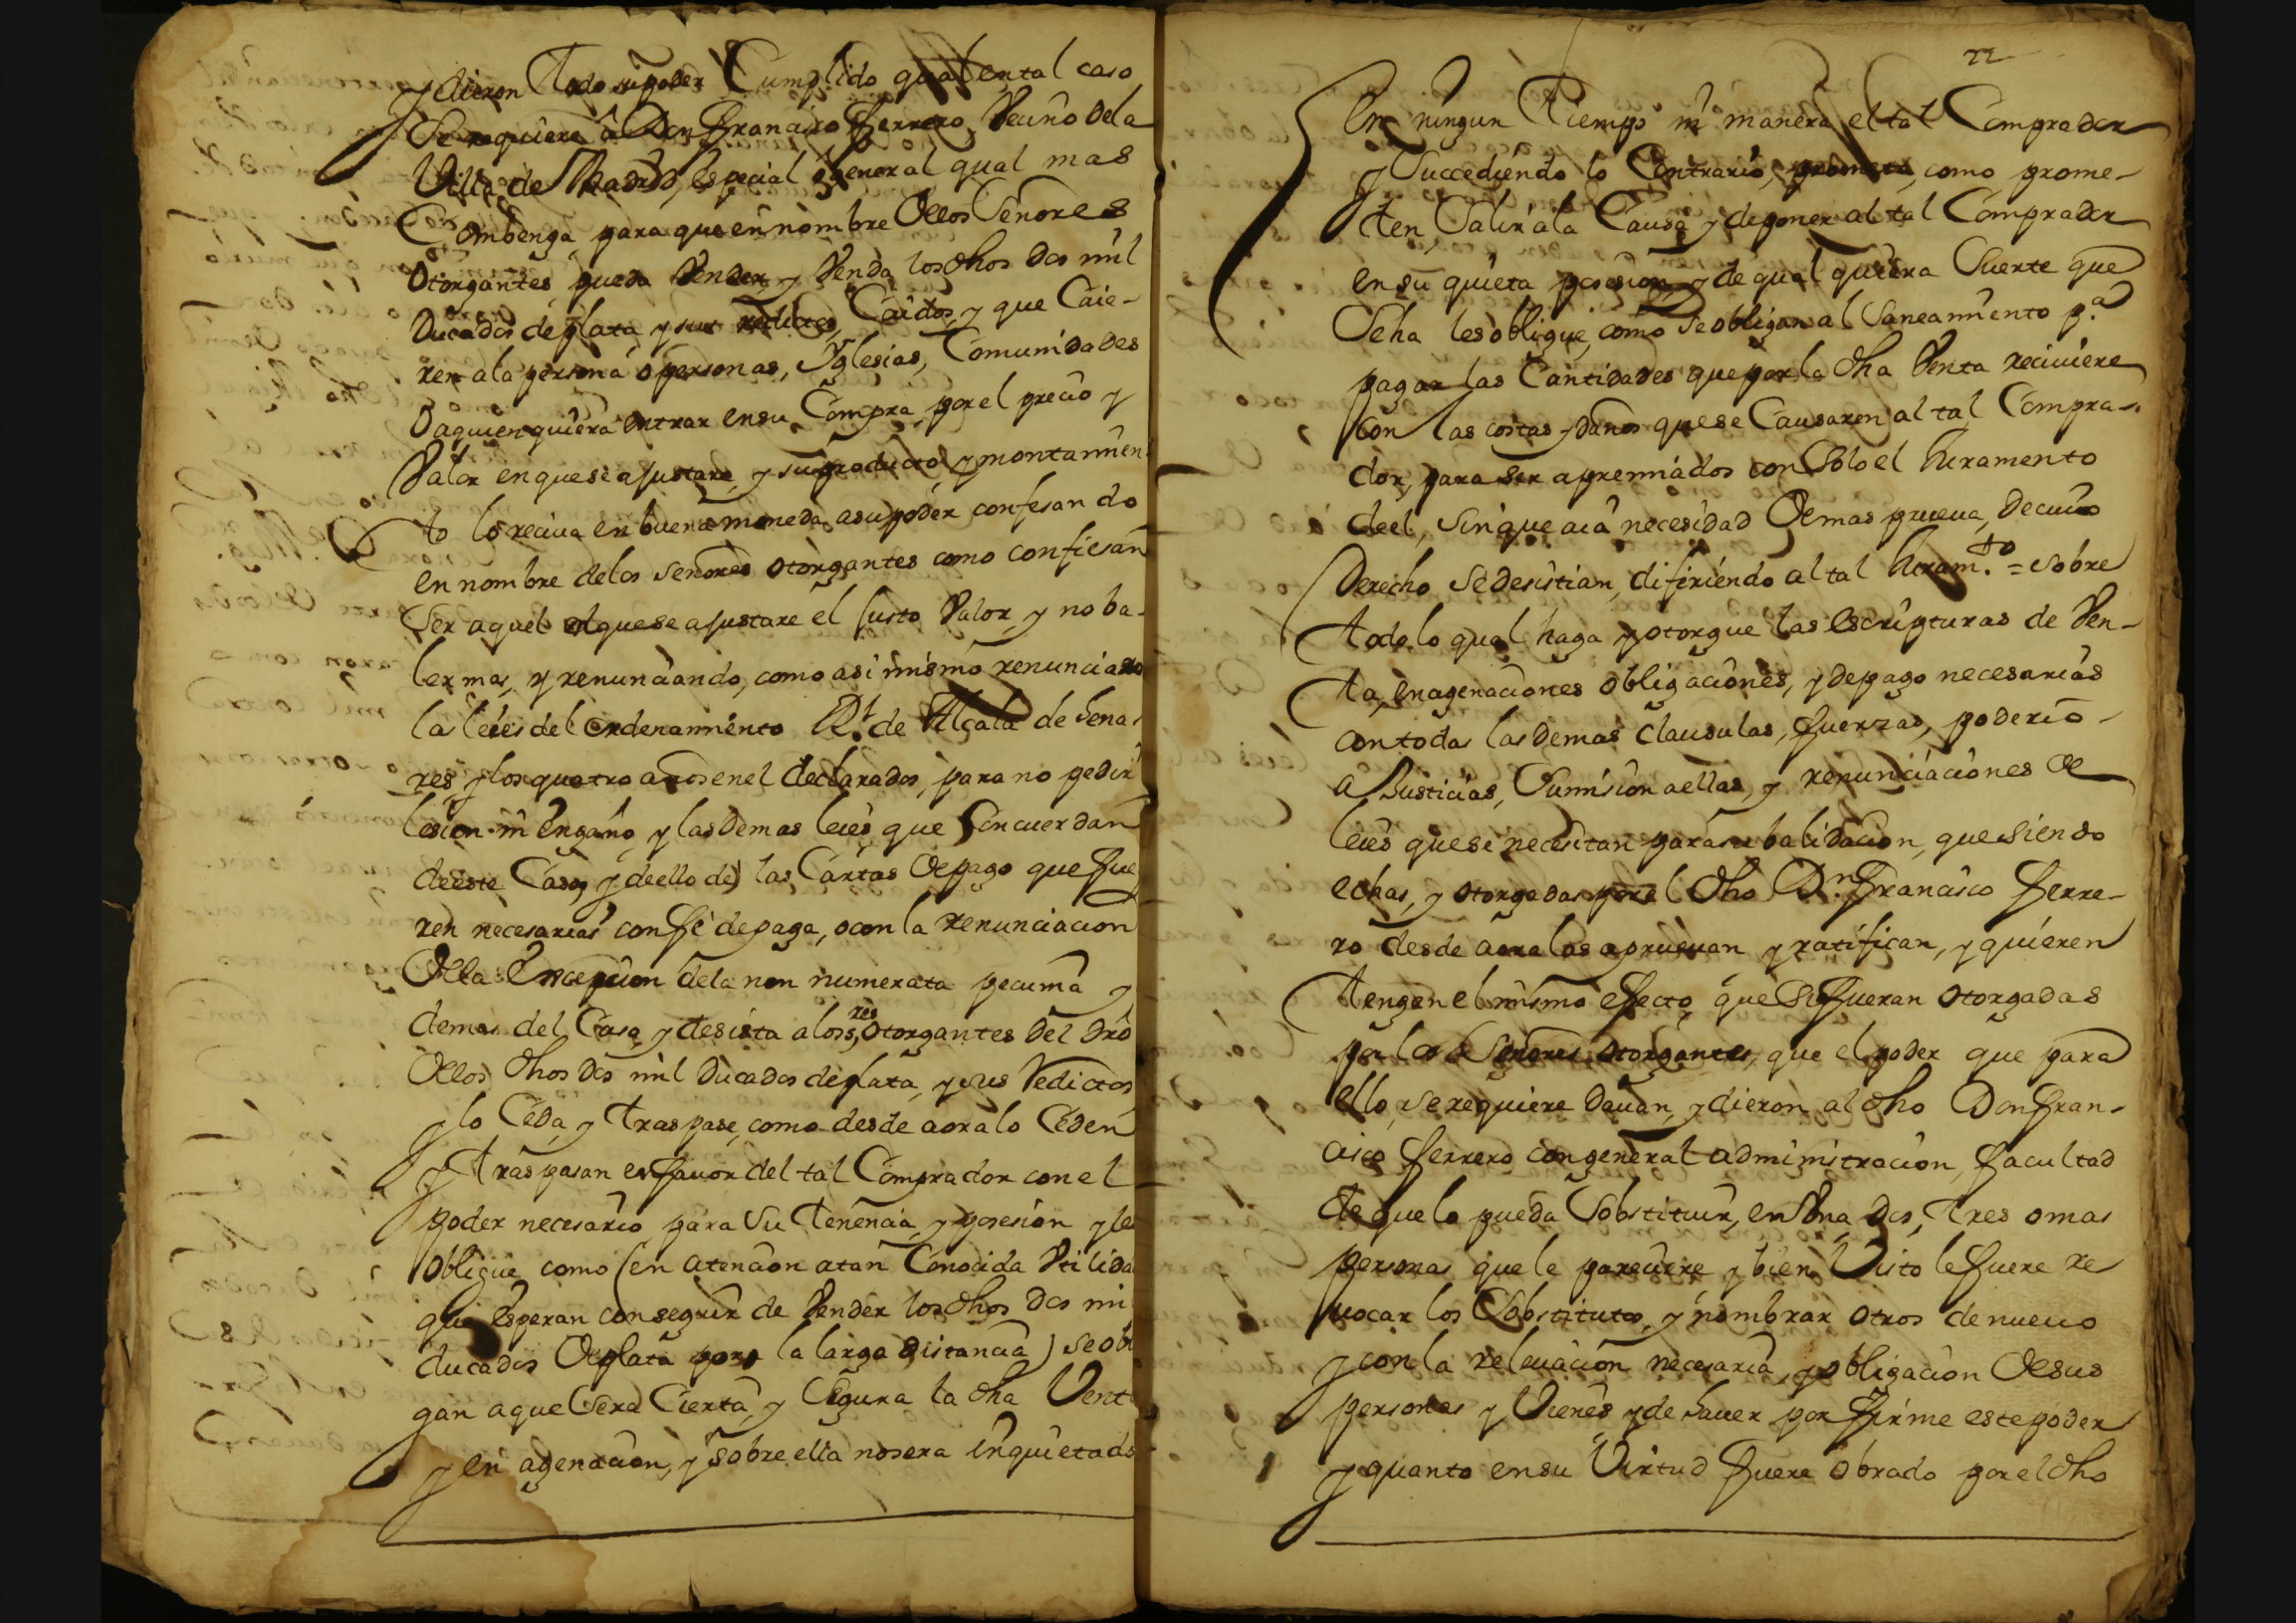 y dieron todo su poder Cumplido qual en tal caso
Se requiere â Don Francisco Ferrero, Vecino de la
Villa de Madrid, especial ô general qual mas
Combenga para que en nombre dellos Señores
Otorgantes pueda Vender, y Venda los dhos dos mil
Ducados de plata y sus redictos Caidos, y que Caie-
ren a la persona ô personas, Yglesias, Comunidades
O a quien quiera entrar en su Compra por el precio y
Valor en que se ajustare, y su producto, y montamien
to lo reciva en buena moneda a su poder confesando
en nombre de los señores otorgantes como confiesan
Ser aquel el que se ajustare el Justo Valor, y no ba-
ler mas, y renunciando, como asi mismo renunciaron
las leies del ordenamiento Rl. de Alcala de hena
res, y los quatro años en el declarados, para no pedir
lesion ni engaño, y las Demas leies que Concuerdan
de este Caso, y de ello de las Cartas de pago que fue
ren necesarias con fe de paga, o con la renunciacion
De la Excepcion de la non numerata pecunia y
demas del Caso, y desista a los ss.res Otorgantes Del Dro
Dellos dhos dos mil Ducados de plata, y sus Redictos
y lo Ceda, y traspase, como desde aora lo Ceden
y traspasan en favor del tal Comprador con el
poder necesario para su tenencia, y posesion y les
Obligue como (en atencion a tan Conocida Utilida
que esperan conseguir de Vender los dhos dos mil
ducados de plata por la larga distancia) se obli
gan a que Sera Cierta, y Segura la dha Venta
y en agenacion, y sobre ella no sera inquietado
22
En ningun Tiempo ni manera el tal Comprador
y Succediendo lo Contrario, prometa, como prome-
ten, Salir a la Causa y deponer al tal Comprador
en su quieta posesion, y de qual quiera Suerte que
Seha les obligue, como se obligan al Saneamiento p.a
pagar las Cantidades que por la dha Venta reciviere
Con las costas, y daños que se Causaren al tal Compra-
dor, para ser apremiados con Solo el Juramento
de el, sin que aia necesidad De mas prueva, De cuio
Derecho se desistian, difiriendo al tal Juram.to = sobre
todo lo qual haga, y otorgue las escripturas de Ven-
ta, enagenaciones obligaciones, y de pago necesarias
con todas las Demas clausulas, fuerzas, poderio
a Justicias, Sumision a ellas, y renunciaciones de
leies que se necesitan para su balidacion, que siendo
echas, y otorgadas por el dho D.n Francisco Ferre-
ro desde aora las apruevan y ratifican, y quieren
tengan el mismo efecto, que Si fueran otorgadas
por los Señores otorgantes, que el poder que para
ello, se requiere Davan, y dieron al dho Don Fran-
cisco Ferrero con general administracion, facultad
de que lo pueda Sobstituir, en Una, dos, tres o mas
personas que le pareciere y bien Visto le fuere re
vocar los Sobstitutos, y nombrar otros de nuevo
y con la relevacion necesaria, y obligacion de sus
personas y Vienes y de haver por firme este poder
y quanto en su Virtud fuere obrado por el dho